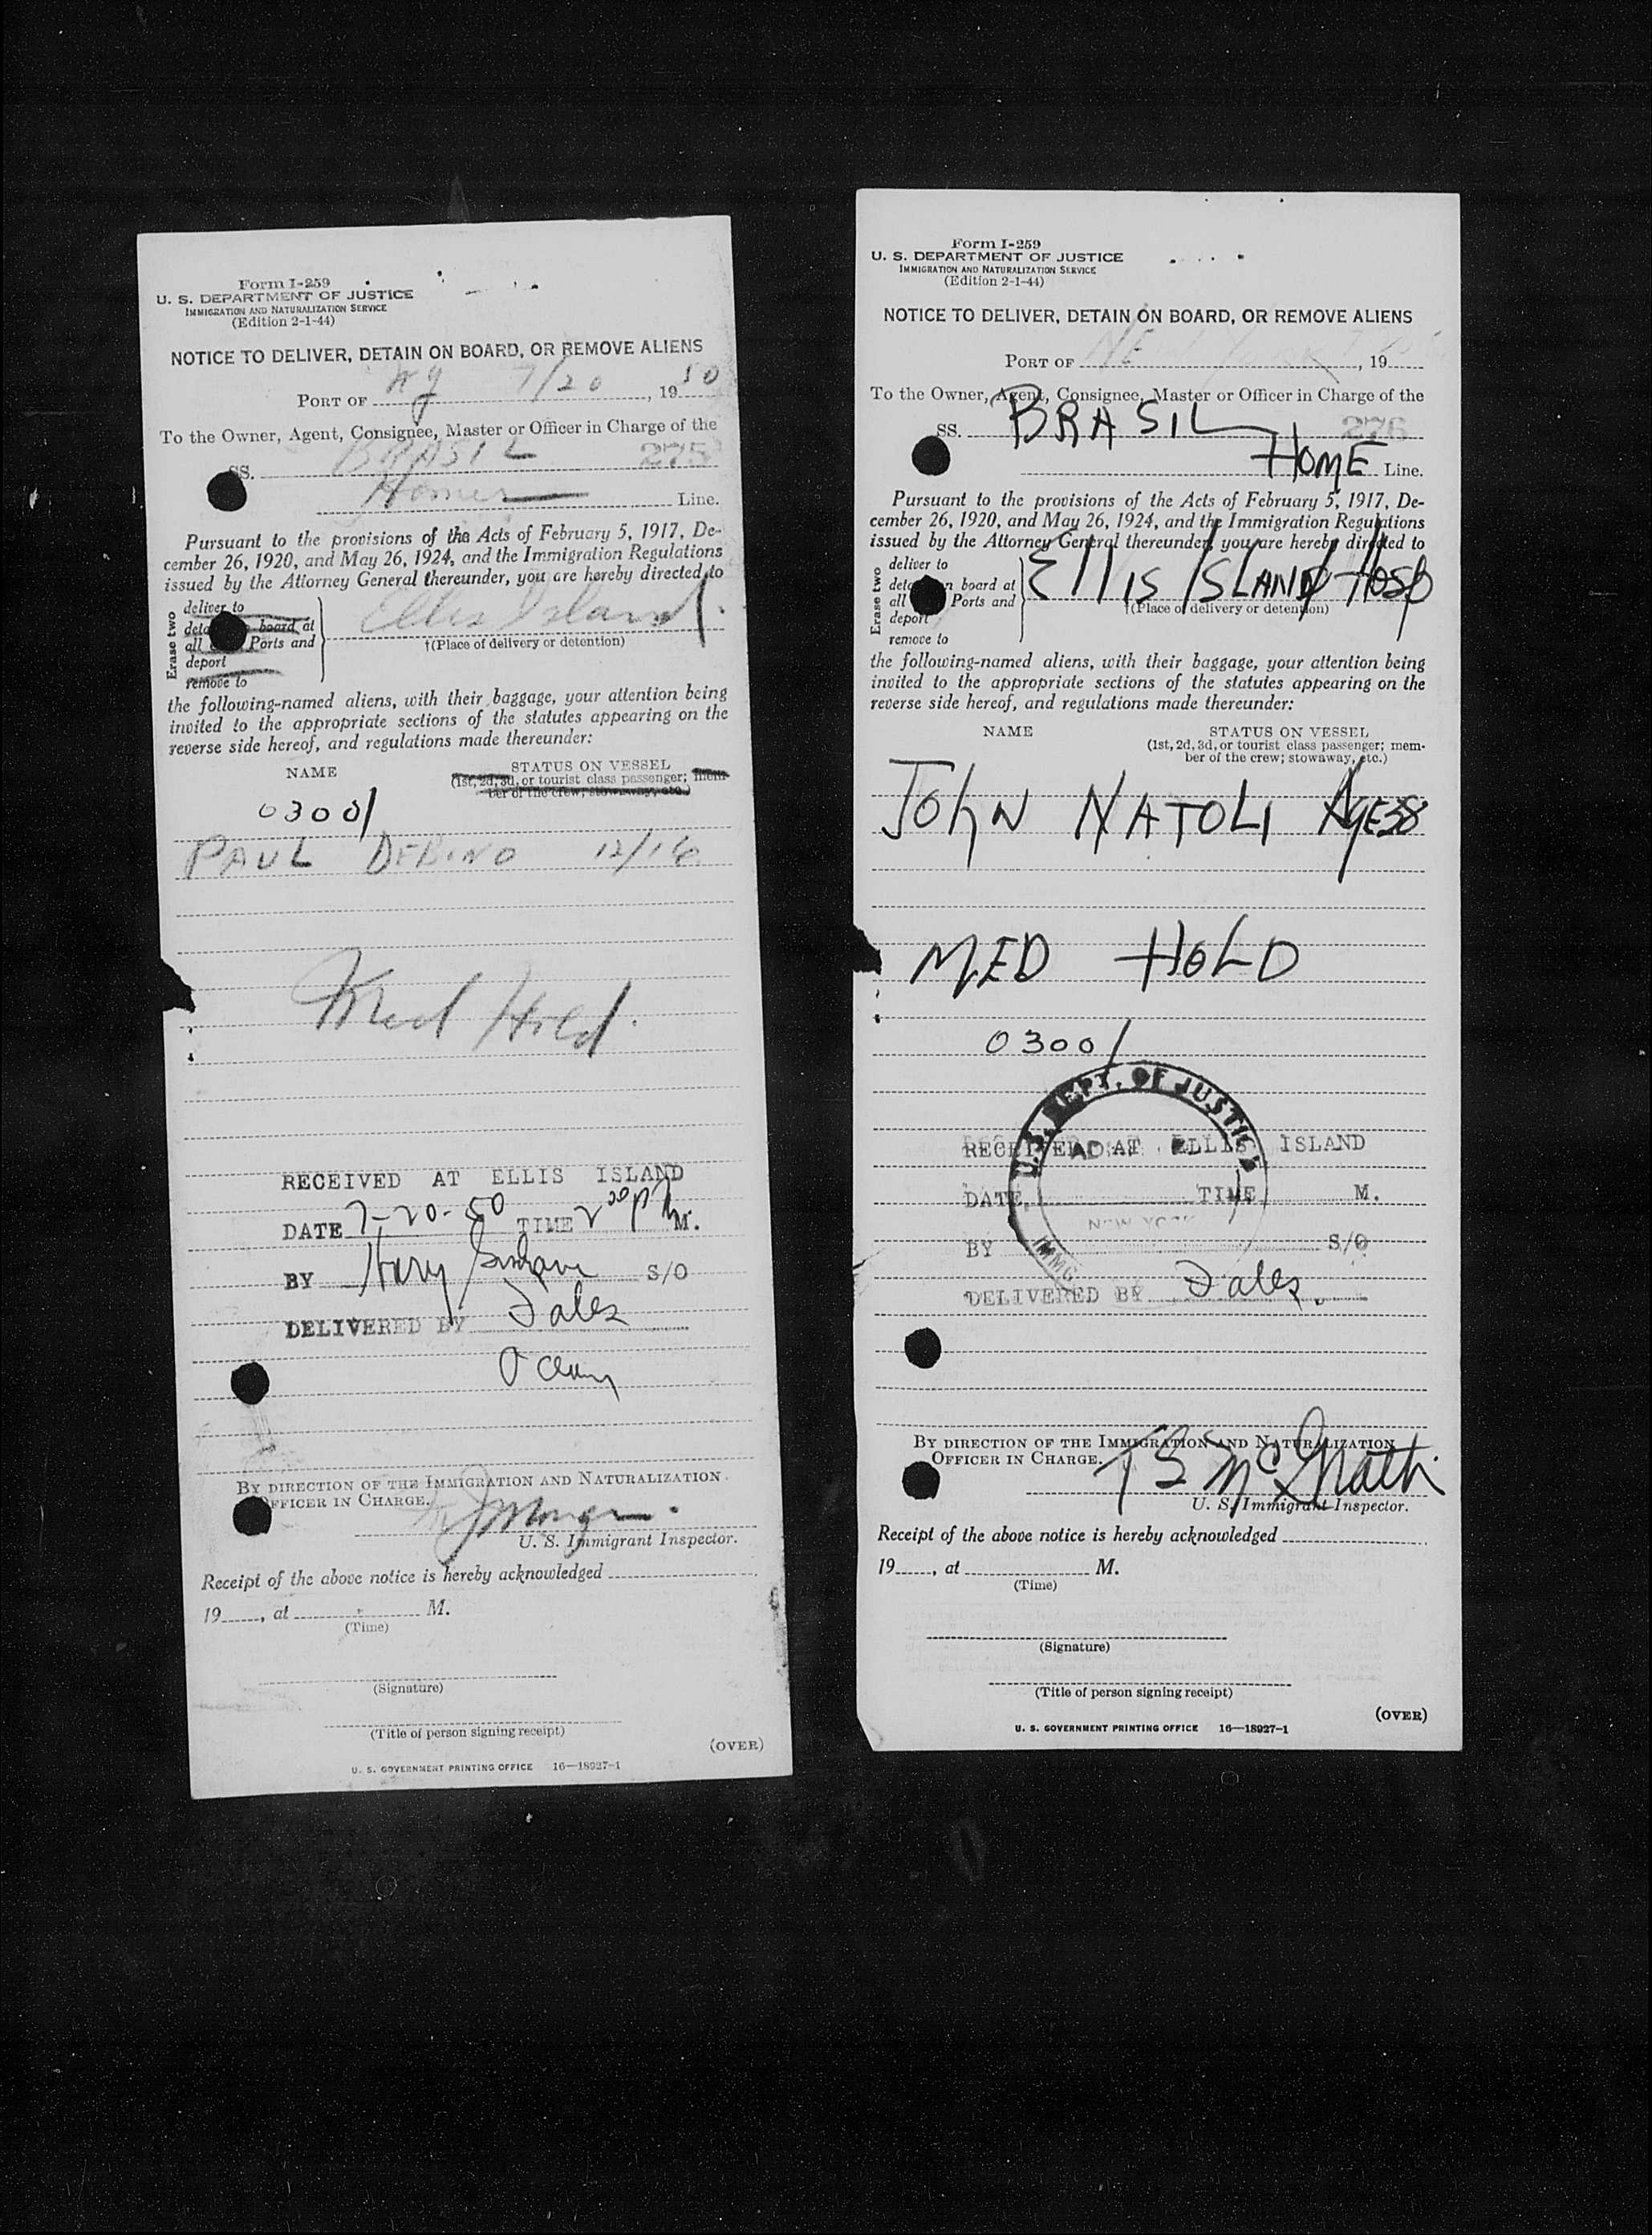 Form I-259
U. S. DEPARTMENT OF JUSTICE
IMMIGRATION AND NATURALIZATION SERVICE
(Edition 2-1-44)
NOTICE TO DELIVER, DETAIN ON BOARD, OR REMOVE ALIENS
PORT OF NY 7/20, 1950
To the Owner, Agent, Consignee, Master or Officer in Charge of the
SS. BRASIL 275
Line.
Pursuant to the provisions of the Acts of February 5, 1917, De-
cember 26, 1920, and May 26, 1924, and the Immigration Regulations
issued by the Attorney General thereunder, you are hereby directed to
Erase two
deliver to
board at
all Ports and
deport
remove to
Ellis Island.
†(Place of delivery or detention)
the following-named aliens, with their baggage, your attention being
invited to the appropriate sections of the statutes appearing on the
reverse side hereof, and regulations made thereunder:
NAME
STATUS ON VESSEL
(1st, 2d, 3d, or tourist class passenger; mem-
ber of the crew; stowaway, etc.)
0300/
PAUL 12/16
Med Hold.
RECEIVED AT ELLIS ISLAND
DATE 7-20-50 TIME 2 00 P M.
BY Harry S/O
DELIVERED BY Fales
BY DIRECTION OF THE IMMIGRATION AND NATURALIZATION
OFFICER IN CHARGE.
U. S. Immigrant Inspector.
Receipt of the above notice is hereby acknowledged
19, at M.
(Time)
(Signature)
(Title of person signing receipt)
(OVER)
U. S. GOVERNMENT PRINTING OFFICE 16—18927-1
Form I-259
U. S. DEPARTMENT OF JUSTICE
IMMIGRATION AND NATURALIZATION SERVICE
(Edition 2-1-44)
NOTICE TO DELIVER, DETAIN ON BOARD, OR REMOVE ALIENS
PORT OF, 19
To the Owner, Agent, Consignee, Master or Officer in Charge of the
SS. BRASIL 276
HOME Line.
Pursuant to the provisions of the Acts of February 5, 1917, De-
cember 26, 1920, and May 26, 1924, and the Immigration Regulations
issued by the Attorney General thereunder, you are hereby directed to
Erase two
deliver to
board at
all Ports and
deport
remove to
Ellis ISLAND HOSP
†(Place of delivery or detention)
the following-named aliens, with their baggage, your attention being
invited to the appropriate sections of the statutes appearing on the
reverse side hereof, and regulations made thereunder:
NAME
STATUS ON VESSEL
(1st, 2d, 3d, or tourist class passenger; mem-
ber of the crew; stowaway, etc.)
JOHN NATOLI AGE 38
MED HOLD
0300/
U. S. DEPT. OF JUSTICE
RECEIVED AT ELLIS ISLAND
DATE TIME M.
NEW YORK
BY S/O
IMMG
DELIVERED BY Fales.
BY DIRECTION OF THE IMMIGRATION AND NATURALIZATION
OFFICER IN CHARGE.
T B McGrath
U. S. Immigrant Inspector.
Receipt of the above notice is hereby acknowledged
19, at M.
(Time)
(Signature)
(Title of person signing receipt)
(OVER)
U. S. GOVERNMENT PRINTING OFFICE 16—18927-1